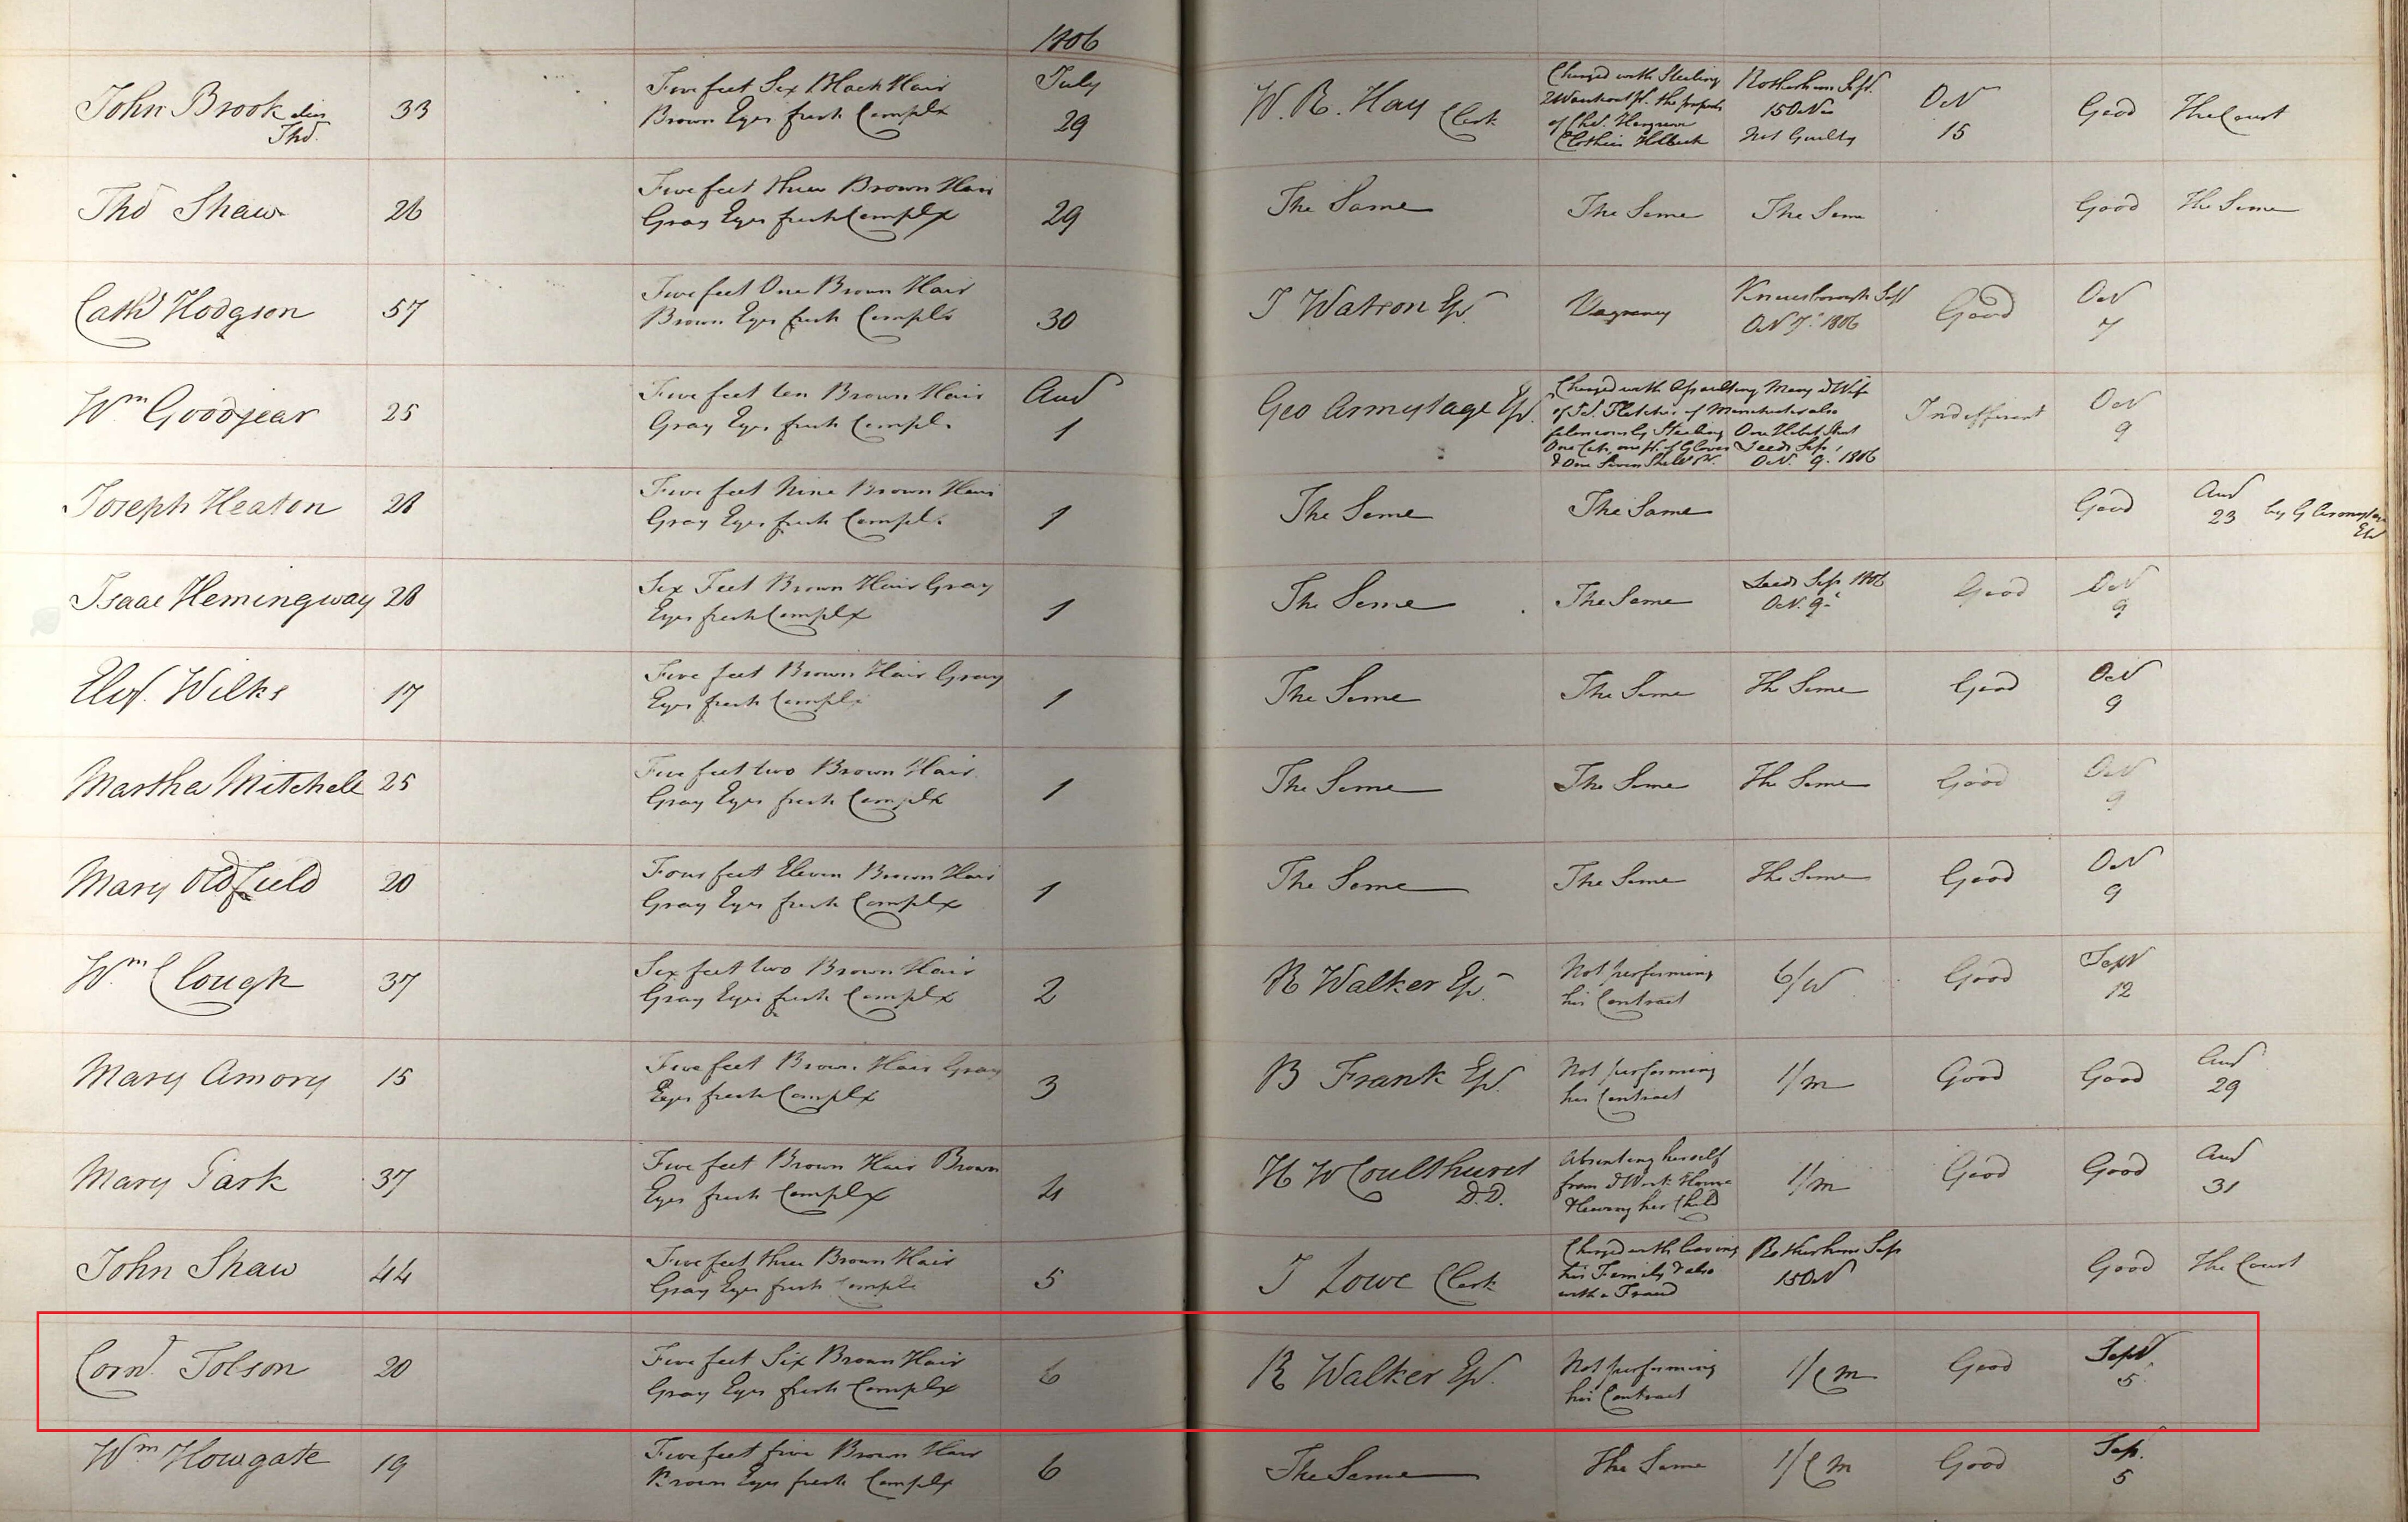 1806
John Brook alias
Thos.
33
Five feet Six Black Hair
Brown Eyes fresh Complx
July
29
W. R. Hay Clerk
Charged with Stealing
of Chs.
Clothier Holbeck
Rotherham Sess.
15 Oct
Not Guilty
Oct
15
Good
The Court
Thos Shaw
26
Five feet three Brown Hair
Gray Eyes fresh Complx
29
The Same
The Same
The Same
Good
The Same
Cathe Hodgson
57
Five feet One Brown Hair
Brown Eyes fresh Complx
30
T Watson Esqr.
Vagrancy
Knaresborough Sess
Oct 7th 1806
Good
Oct
7
Wm Goodyear
25
Five feet ten Brown Hair
Gray Eyes fresh Complx
Aug
1
Geo Armytage Esqr.
Charged with Assaulting Mary the Wife
of Jos. Fletcher of Manchester also
feloniously Stealing One
One one pr. of Gloves Leeds Sess.
& One Seven Shillg Oct. 9. 1806
Indifferent
Oct
9
Joseph Heaton
28
Five feet Nine Brown Hair
Gray Eyes fresh Complx
1
The Same
The Same
Good
Aug
23
by G Armytage
Esqr
Isaac Hemingway
28
Six Feet Brown Hair Gray
Eyes fresh Complx
1
The Same
The Same
Leeds Sess 1806
Oct. 9th
Good
Oct
9
Elizh. Wilks
17
Five feet Brown Hair Gray
Eyes fresh Complx
1
The Same
The Same
The Same
Good
Oct
9
Martha Mitchell
25
Five feet two Brown Hair
Gray Eyes fresh Complx
1
The Same
The Same
The Same
Good
Oct
9
Mary Oldfield
20
Four feet Eleven Brown Hair
Gray Eyes fresh Complx
1
The Same
The Same
The Same
Good
Oct
9
Wm Clough
37
Six feet two Brown Hair
Gray Eyes fresh Complx
2
R Walker Esqr.
Not performing
his Contract
6/W
Good
Sept
12
Mary Amory
15
Five feet Brown Hair Gray
Eyes fresh Complx
3
B Frank Esqr.
Not performing
her Contract
1/m
Good
Good
Aug
29
Mary Park
37
Five feet Brown Hair Brown
Eyes fresh Complx
4
H W Coulthurst
D.D.
Absenting herself
from the Work House
& leaving her Child
1/m
Good
Good
Aug
31
John Shaw
44
Five feet three Brown Hair
Gray Eyes fresh Complx
5
T Lowe Clerk
Charged with leaving
his Family & also
with a Fraud
Rotherham Sess
15 Oct
Good
The Court
Cornl. Tolson
20
Five feet Six Brown Hair
Gray Eyes fresh Complx
6
R Walker Esqr.
Not performing
his Contract
1/Cm
Good
Sept
5
Wm Howgate
19
Five feet five Brown Hair
Brown Eyes fresh Complx
6
The Same
The Same
1/Cm
Good
Sep.
5